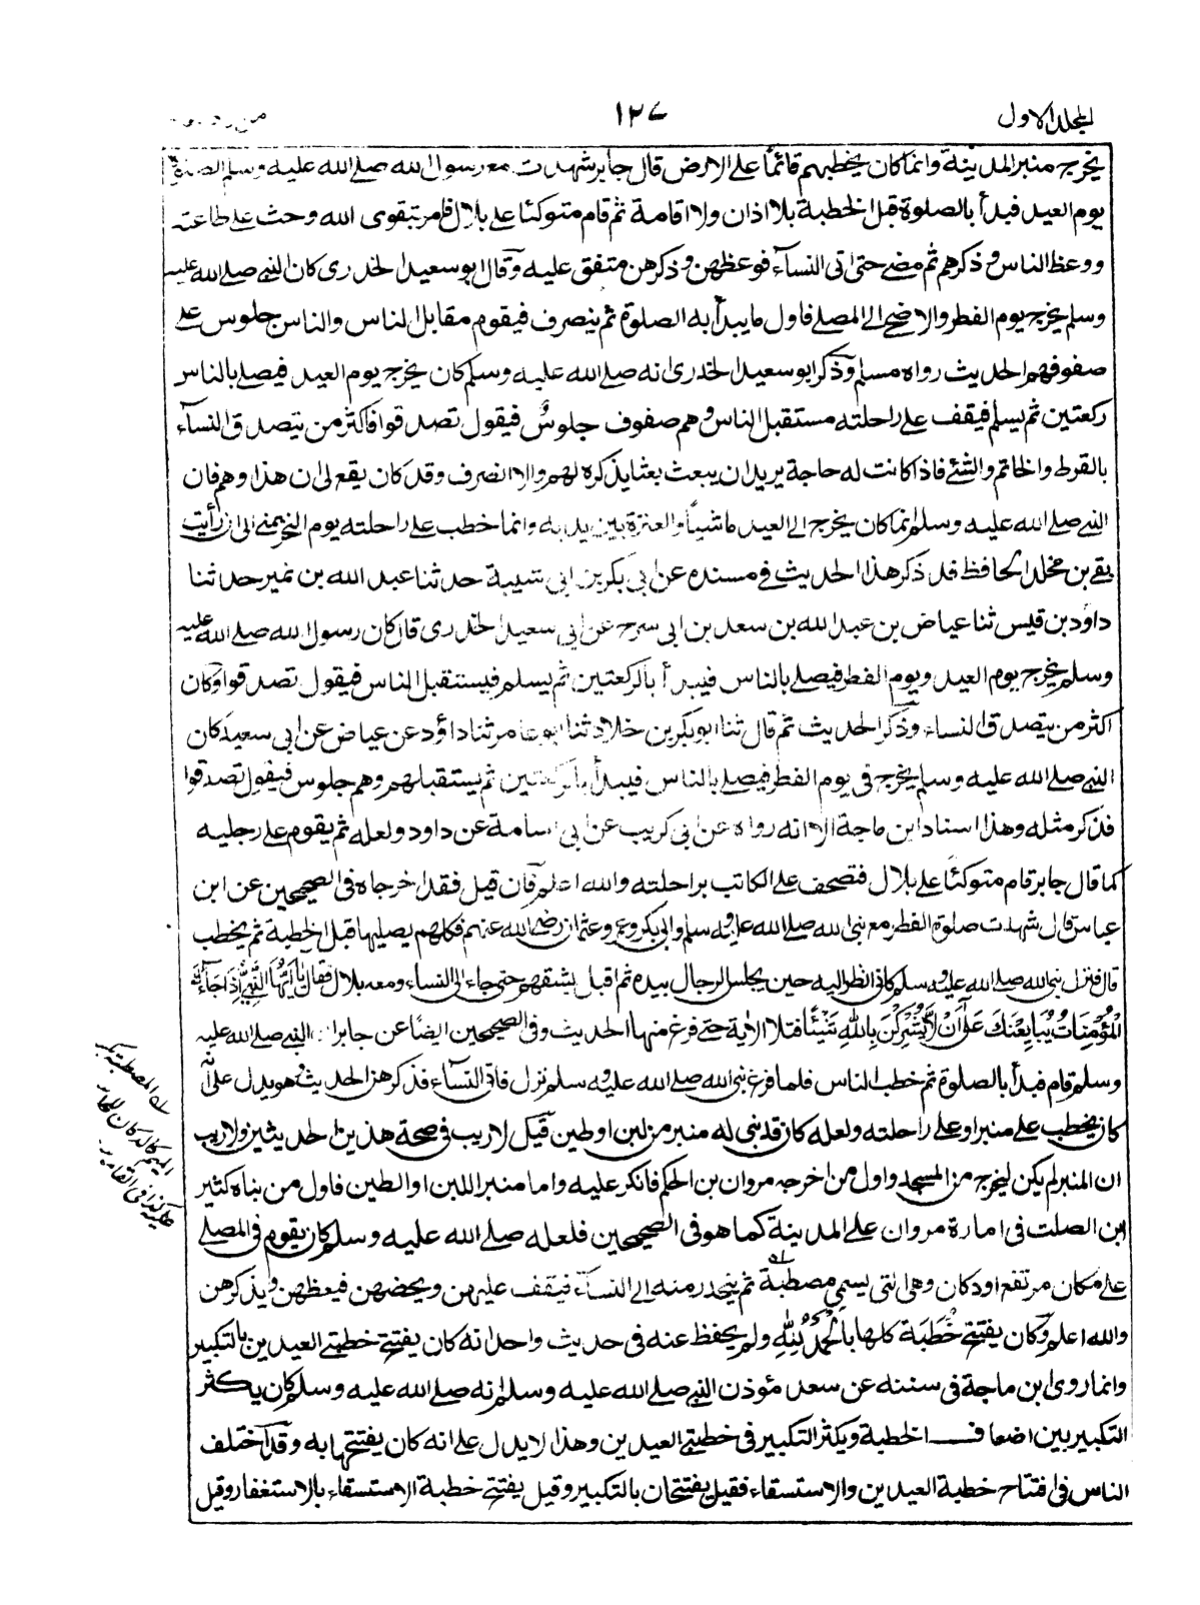 المجلد الاول
١٢٧
يخرج منبر المدينة وانما كان يخطبهم قائما على الارض قال جابر شهدت مع رسول الله صلى الله عليه وسلم الصلوة
يوم العيد فبدأ بالصلوة قبل الخطبة بلا اذان ولا اقامة ثم قام متوكئا على بلال فامر بتقوى الله وحث على طاعته
ووعظ الناس وذكرهم ثم مضى حتى اتى النساء فوعظهن وذكرهن متفق عليه وقال ابو سعيد الخدرى كان النبى صلى الله عليه
وسلم يخرج يوم الفطر والاضحى الى المصلى فاول ما يبدأ به الصلوة ثم ينصرف فيقوم مقابل الناس والناس جلوس على
صفوفهم الحديث رواه مسلم وذكر ابو سعيد الخدرى انه صلى الله عليه وسلم كان يخرج يوم العيد فيصلى بالناس
ركعتين ثم يسلم فيقف على راحلته مستقبل الناس وهم صفوف جلوس فيقول تصدقوا فاكثر من يتصدق النساء
بالقرط والخاتم والشئ فاذا كانت له حاجة يريد ان يبعث بعثا يذكره لهم والا انصرف وقد كان يقع لى ان هذا وهم فان
النبى صلى الله عليه وسلم انما كان يخرج الى العيد ماشيا والعنزة بين يديه وانما خطب على راحلته يوم النحر بمنى الى ان رأيت
بقى بن مخلد الحافظ قد ذكر هذا الحديث فى مسنده عن ابى بكر بن ابى شيبة حدثنا عبد الله بن نمير حدثنا
داود بن قيس ثنا عياض بن عبد الله بن سعد بن ابى سرح عن ابى سعيد الخدرى قال كان رسول الله صلى الله عليه
وسلم يخرج يوم العيد ويوم الفطر فيصلى بالناس فيبدأ بالركعتين ثم يسلم فيستقبل الناس فيقول تصدقوا وكان
اكثر من يتصدق النساء وذكر الحديث ثم قال ثنا ابو بكر بن خلاد ثنا ابو عامر ثنا داود عن عياض عن ابى سعيد كان
النبى صلى الله عليه وسلم يخرج فى يوم الفطر فيصلى بالناس فيبدأ بالركعتين ثم يستقبلهم وهم جلوس فيقول تصدقوا
فذكر مثله وهذا اسناد ابن ماجة الا انه رواه عن ابى كريب عن ابى اسامة عن داود ولعله ثم يقوم على رجليه
كما قال جابر قام متوكئا على بلال فتصحف على الكاتب براحلته والله اعلم فان قيل فقد اخرجاه فى الصحيحين عن ابن
عباس قال شهدت صلوة الفطر مع نبى الله صلى الله عليه وسلم وابى بكر وعمر وعثمان رضى الله عنهم فكلهم يصليها قبل الخطبة ثم يخطب
قال فنزل نبى الله صلى الله عليه وسلم كانى انظر اليه حين يجلس الرجال بيده ثم اقبل يشقهم حتى جاء الى النساء ومعه بلال فقال يٰاَيُّهَا النَّبِىُّ اِذَا جَآءَكَ
الْمُؤْمِنَاتُ يُبَايِعْنَكَ عَلٰى اَنْ لَّا يُشْرِكْنَ بِاللهِ شَيْئًا فتلا الاية حتى فرغ منها الحديث وفى الصحيحين ايضا عن جابر ان النبى صلى الله عليه
وسلم قام فبدأ بالصلوة ثم خطب الناس فلما فرغ نبى الله صلى الله عليه وسلم نزل فاتى النساء فذكرهن الحديث وهو يدل على انه
كان يخطب على منبر او على راحلته ولعله كان قد بنى له منبر من لبن او طين قيل لا ريب فى صحة هذين الحديثين ولا ريب
ان المنبر لم يكن ليخرج من المسجد واول من اخرجه مروان بن الحكم فانكر عليه واما منبر اللبن او الطين فاول من بناه كثير
ابن الصلت فى امارة مروان على المدينة كما هو فى الصحيحين فلعله صلى الله عليه وسلم كان يقوم فى المصلى
على مكان مرتفع او دكان وهى التى يسمى مصطبة ثم ينحدر منه الى النساء فيقف عليهن ويحضهن فيعظهن ويذكرهن
والله اعلم وكان يفتتح خُطَبَه كلها بالحمد لله ولم يحفظ عنه فى حديث واحد انه كان يفتتح خطبتى العيدين بالتكبير
وانما روى ابن ماجة فى سننه عن سعد مؤذن النبى صلى الله عليه وسلم انه صلى الله عليه وسلم كان يكثر
التكبير بين اضعاف الخطبة ويكثر التكبير فى خطبتى العيدين وهذا لا يدل على انه كان يفتتحها به وقد اختلف
الناس فى افتتاح خطبة العيدين والاستسقاء فقيل يفتتحان بالتكبير وقيل يفتتح خطبة الاستسقاء بالاستغفار وقيل